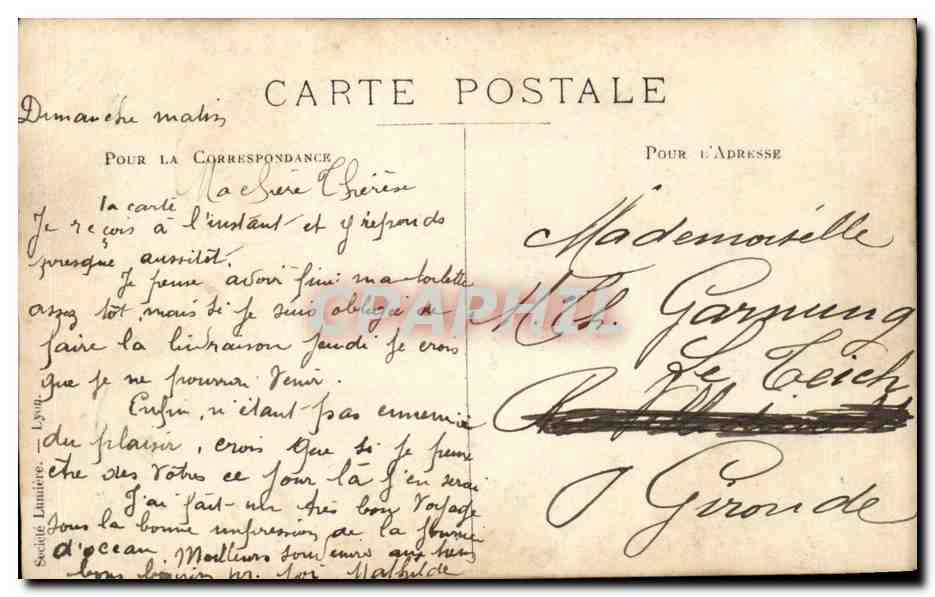 CARTE POSTALE
Dimanche matin
POUR LA CORRESPONDANCE
Ma chère Thérèse
la carte
Je reçois à l'instant et y réponds
presque aussitôt.
Je pense avoir fini ma toilette
assez tôt, mais si je suis obligée de
faire la livraison jeudi je crois
que je ne pourrai venir.
Enfin, n'étant pas ennemie
du plaisir, crois que si je peux
être des vôtres ce jour là j'en serai
J'ai fait un très bon voyage
sous la bonne impression de la journée
d'océan. Meilleurs souvenirs aux tiens
bons baisers pr. toi Mathilde
POUR L'ADRESSE
Mademoiselle
M. Th. Garnung
Le Teich
Gironde
Société Lumière. — Lyon.
CRAPHIL